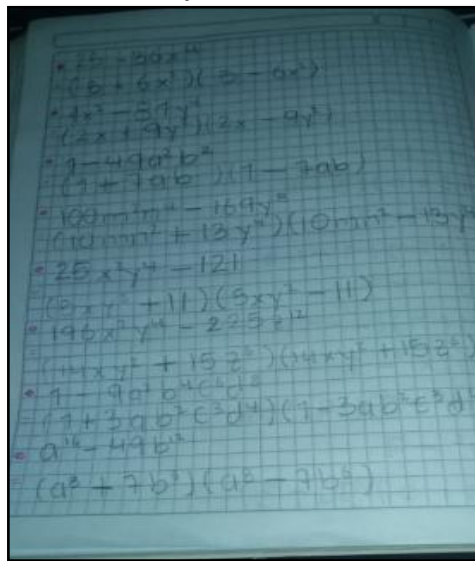 25 - 36x⁴
(5 + 6x²)(5 - 6x²)
4x² - 81y⁴
(2x + 9y²)(2x - 9y²)
1 - 49a²b²
(1 + 7ab)(1 - 7ab)
100m²n⁴ - 169y⁸
(10mn² + 13y⁴)(10mn² - 13y
25x²y⁴ - 121
(5xy² + 11)(5xy² - 11)
196x²y⁴ - 225z¹²
(14xy² + 15z⁶)(14xy² + 15z⁶)
1 - 9a²b⁴c⁶d⁸
(1 + 3ab²c³d⁴)(1 - 3ab²c³d⁴
a¹⁶ - 49b¹²
(a⁸ + 7b⁶)(a⁸ - 7b⁶)